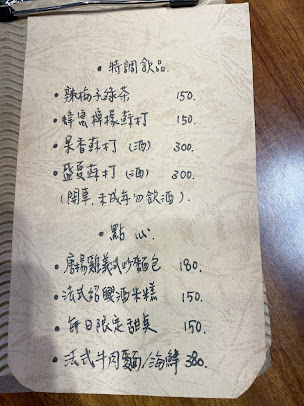 • 特調飲品.
• 辣梅子綠茶 150.
• 蜂蜜檸檬蘇打 150.
• 果香蘇打 (酒) 300.
• 盛夏蘇打 (酒) 300.
(開車.未成年勿飲酒).
• 點心.
• 唐揚雞義式吵麵包 180.
• 法式紹興酒米糕 150.
• 每日限定甜桌 150.
• 法式牛肉麵/海鮮 380.